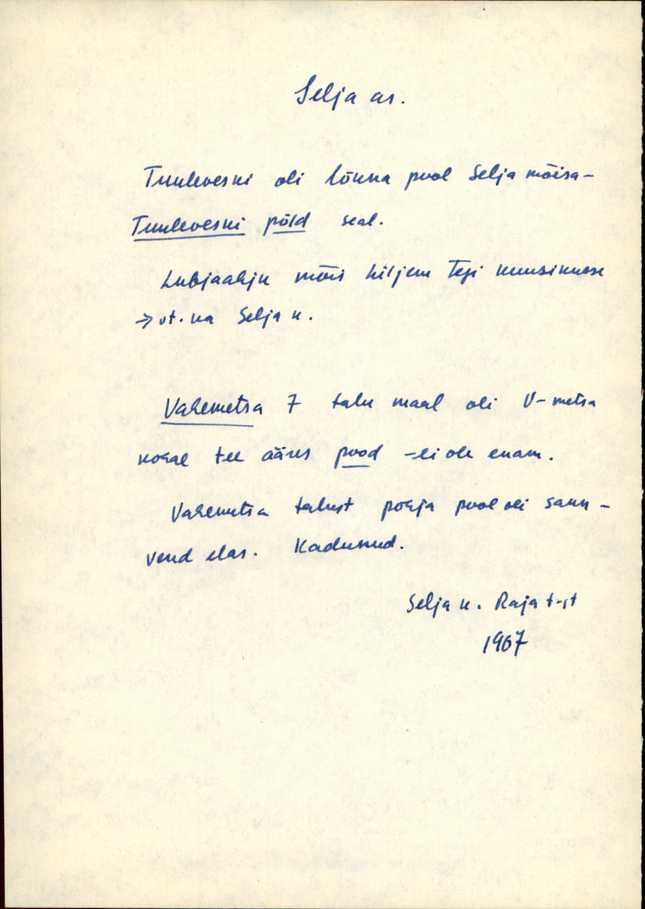 Selja as.
Tuuleveski oli lõuna pool Selja mõisa-
Tuuleveski põld seal.
Lubjaahju mõis hiljem Teji kuusikusse
→ vt. ka Selja k.
Vahemetsa 7 talu maal oli V-metsa
kohal tee ääres pood - ei ole enam.
Vahemetsa talust põhja pool oli saun -
vend elas. Kadunud.
Selja k. Raja t-st
1967